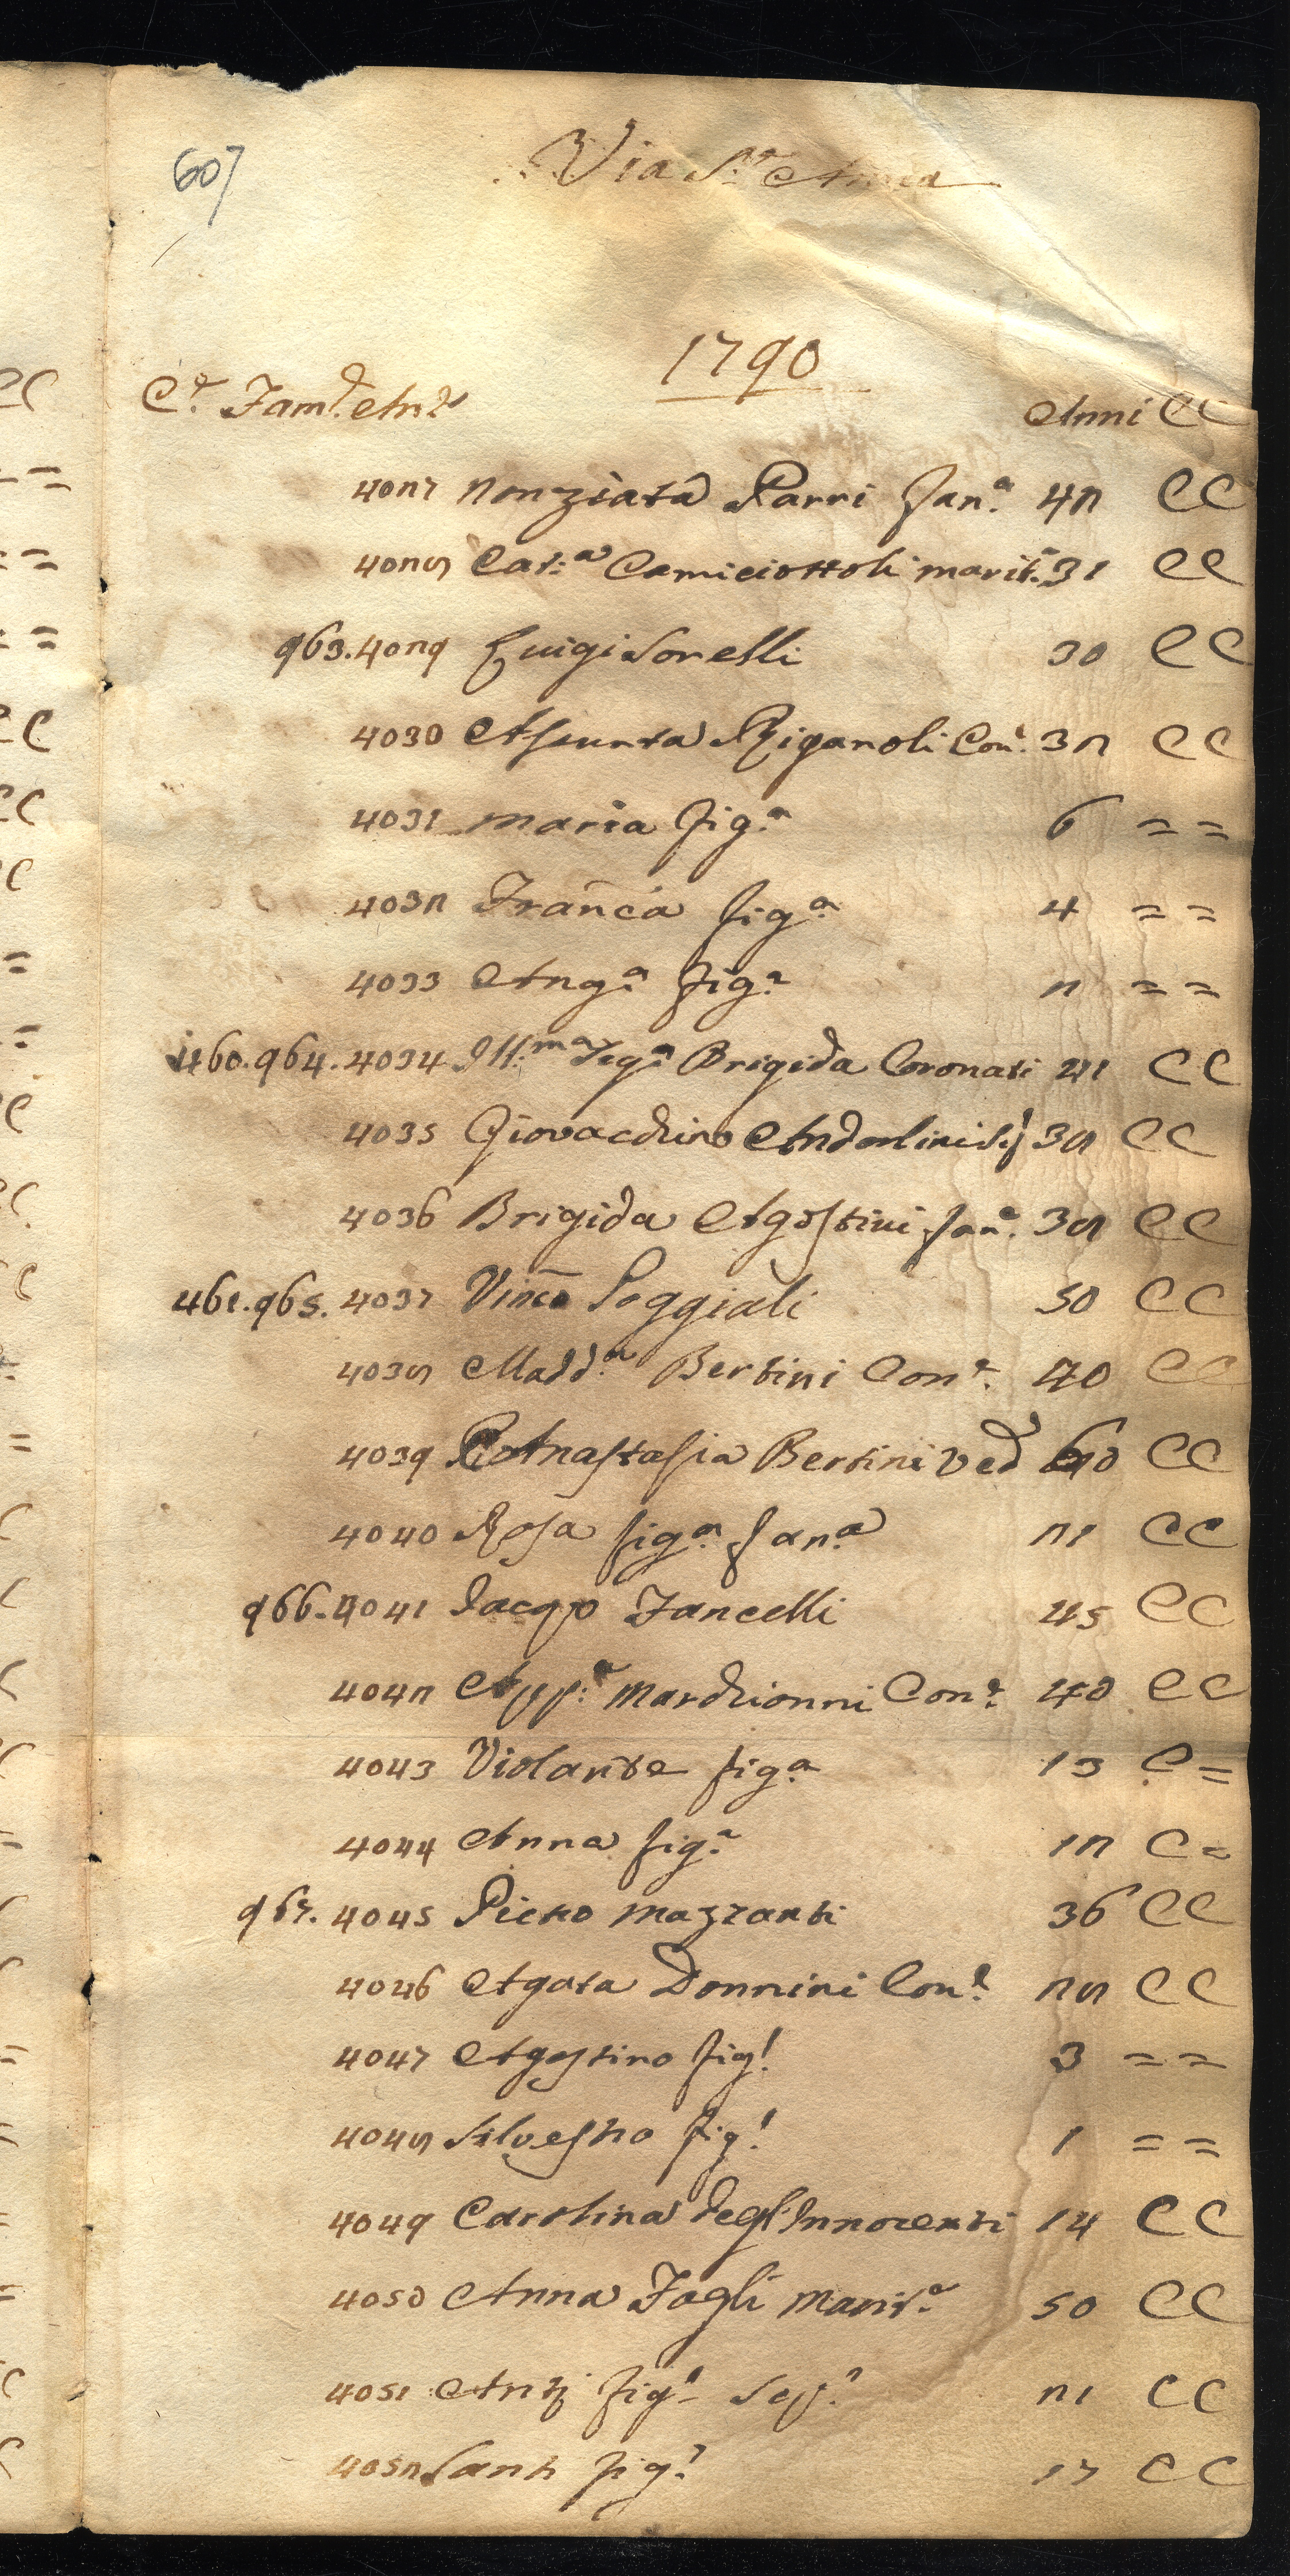 607
Via S.ta Anna
1790
C.e Fam.e An.e Anni CC
4027 Nonziata Parri Fan.a 42 CC
4028 Cat.a Camiciottoli marit.a 31 CC
963. 4029 Luigi Sorelli 30 CC
4030 Assunta Riganoli Con.e 32 CC
4031 Maria fig.a 6 = =
4032 Franca fig.a 4 = =
4033 Ang.a fig.a 2 = =
460. 964. 4034 Ill.ma Sig.a Brigida Coronati 41 CC
4035 Giovacchino Andorlini 38 CC
4036 Brigida Agostini fan.a 38 CC
461. 965. 4037 Vinco Poggiali 50 CC
4038 Madd.a Bertini Con.e 40 CC
4039 Anastasia Bertini Ved 60 CC
4040 Rosa fig.a fan.a 21 CC
966. 4041 Jacopo Fancelli 45 CC
4042 App.a Marchionni Con.e 40 CC
4043 Violante fig.a 13 C =
4044 Anna fig.a 12 C =
967. 4045 Pietro Mazzanti 36 CC
4046 Agata Donnini Con.e 28 CC
4047 Agostino fig.l 3 = =
4048 Silvestro fig.l 1 = =
4049 Carolina degl'Innocenti 14 CC
4050 Anna Fagli Marit.a 50 CC
4051 fig.o 21 CC
4052 Santi fig.o 17 CC